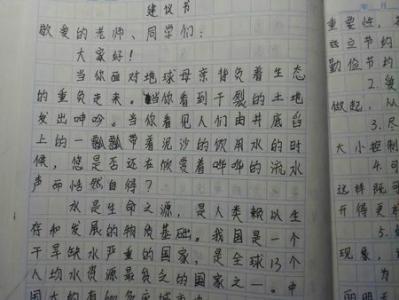 建议书
敬爱的老师、同学们：
大家好！
当你面对地球母亲背负着生态
的重负走来。当你看到干裂的土地
发出呻吟。当你看见人们由井底舀
上的一瓢瓢带着泥沙的饮用水的时
候，您是否还在欣赏着哗哗的流水
声而恬然自得？
水是生命之源，是人类赖以生
存和发展的物质基础。我国是一个
干旱缺水严重的国家，是全球13个
人均水资源最贫乏的国家之一。中
重要性，
节约
勤俭节约
2.
做起，从
3.尽
大小控制
4.可
这样既可
开得更
5.
现象，
为